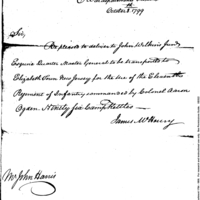 October 1799
Sir,
Be pleased to deliver to John Wilkins junr.
Esquire Quarter Master General to be transported to
Elizabeth Town New Jersey for the use of the Eleventh
Regiment of Infantry commanded by Colonel Aaron
Ogden Ninety six Camp Kettles
James McHenry
Mr. John Harris